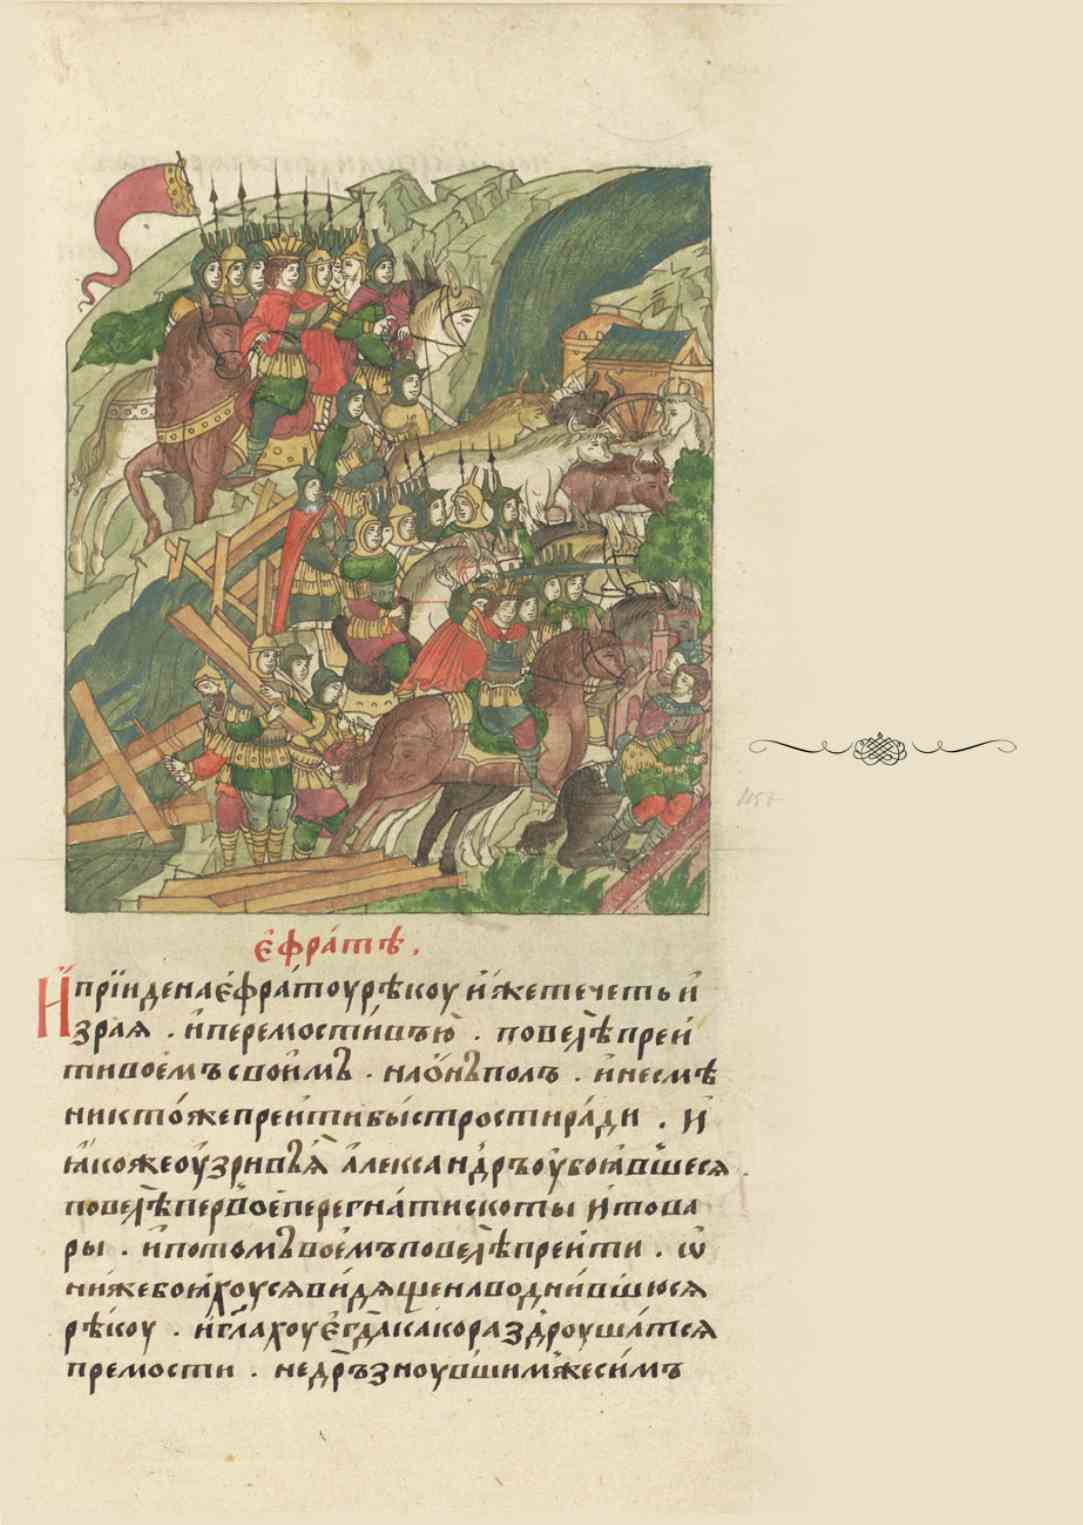 є҆фра́тѣ .
И҆прїиденаєфра́тоурѣкоу и҆жетечетьи҆
зрая . и҆перемости́въю̀ . повелѣпреи
тивоемъсвои҆мъ . наѻ҆нъполъ . и҆несмѣ
никто́жепреити бы́стростира́ди . И
ꙗ҆кожеоу҆зривъꙗ҆ а҆леѯандръоу҆боꙗ́вшеся .
повелѣпервоеперегна́тискоты и҆това
ры . и҆потомъвоемъповелѣпреити . ѡ
нижебоꙗ́хоусяви́дященаводни́вшюся
рѣ́коу . и҆гл҃ахоує҆гдакакораздроуша́тся
премости . недръзноу́вшимжеси́мъ